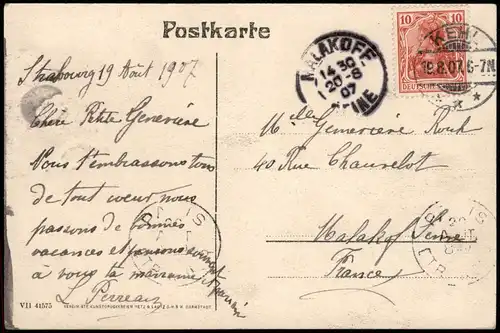 Postkarte
Strasbourg 19 Août 1907
Chère Petite Geneviève
Nous t'embrassons tous
de tout coeur, nous
passons de bonnes
vacances et pensons souvent
à vous ta marraine
L Perreau
MALAKOFF
14 30
20-8
07
SEINE
10
DEUTSCHES
KEHL
19.8.07. 6-7N.
* *
Melle Geneviève
40 Rue Chauvelot
Malakof Seine
France
VII 41575